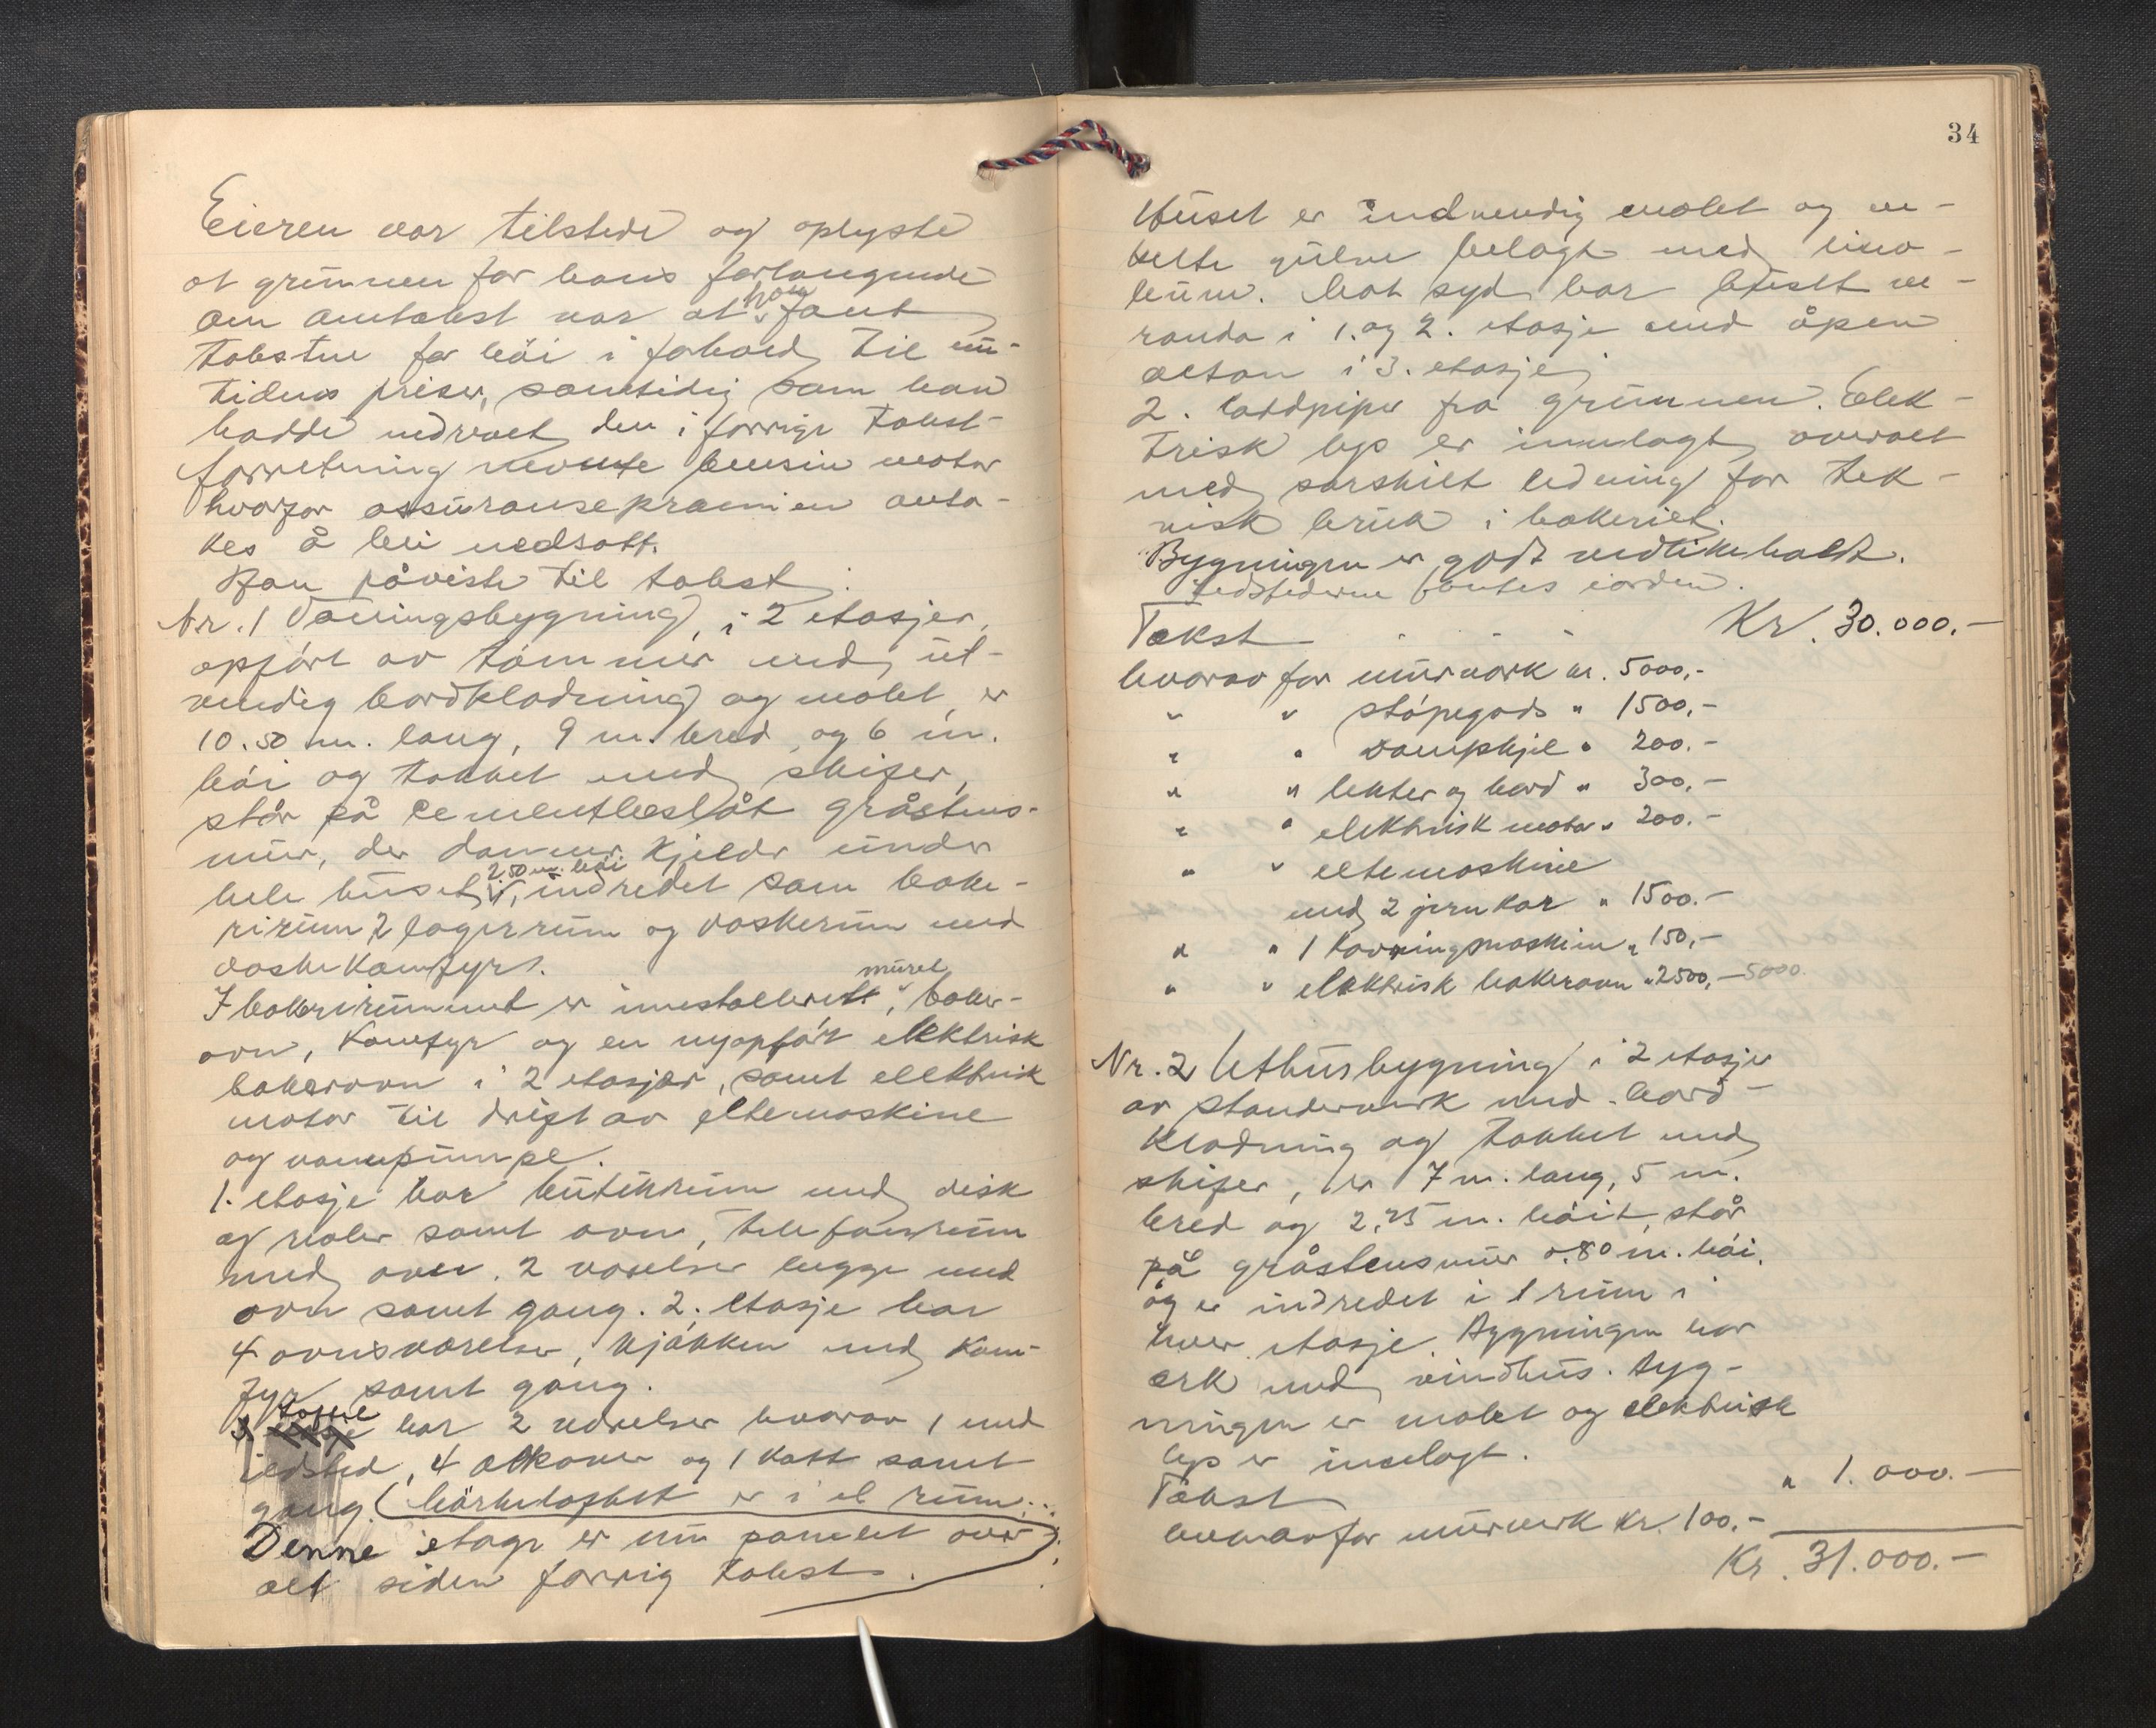 Eieren var tilstede og oplyste
at grunnen for hans forlangende
om omtakst var at han fant
taksten for høi i forhold til nu-
tidens priser, samtidig som han
hadde nedrevet den i forrige takst-
forretning nevnte bensin motor
hvorfor assuransepræmien anta-
kes å bli nedsatt.
Han påviste til takst:
Nr. 1 Våningsbygning i 2 etasjer,
opført av tømmer med ut-
vendig bordklædning og malet, er
10.50 m. lang, 9 m. bred og 6 m.
høi og tækket med skifer,
står på cementbeslåt gråstens-
mur, der danner kjelder under
hele huset, 2.50 m. høi indredet som bake-
rirum 2 lagerrum og vaskerum med
vaskekomfyr.
I bakerirummet er innstalleret muret baker-
ovn, komfyr og en nyopført elektrisk
bakerovn i 2 etasjer, samt elektrisk
motor til drift av eltemaskine
og vannpumpe.
1. etasje har butikkrum med disk
og reoler samt ovn, telefonrum
med ovn. 2 værelser begge med
ovn samt gang. 2. etasje har
4 ovnsværelser, kjøkken med kom-
fyr samt gang.
3 etasje har 2 værelser hvorav 1 med
ildsted, 4 alkover og 1 kott samt
gang. (Mørkeloftet er i et rum.
Denne etage er nu panelet over
alt siden forrig takst.
34
Huset er indvendig malet og en-
kelte gulve belagt med lino-
leum. Mot syd har huset ve-
randa i 1. og 2. etasje med åpen
altan i 3. etasje.
2. lordpiper fra grunnen. Elek-
trisk lys er innlagt overalt
med særskilt ledning for tek-
nisk bruk i bakeriet.
Bygningen er godt vedlikeholdt.
Ildstederne fantes iorden.
Takst - - - Kr. 30.000.-
hvorav for murverk kr. 5000,-
" " støpegods " 1500,-
" " vannpkjel " 200.-
" " lekter og bord " 300,-
" " elektrisk motor " 200.-
" " eltemaskine
med 2 jernkar " 1500.-
" " 1 kavringmaskin " 150,-
" " elektrisk bakerovn " 2500,- 5000.
Nr. 2 Uthusbygning i 2 etasjer
av standerverk med bord-
klædning og tækket med
skifer, er 7 m. lang, 5 m.
bred og 2,75 m. høi, står
på gråstensmur 0.80 m. høi,
og er indredet i 1 rum i
hver etasje. Bygningen har
ark med vindhus. Byg-
ningen er malet og elektrisk
lys er innlagt.
Takst " 1.000.-
hvorav for murverk kr. 100.-
Kr. 31.000.-